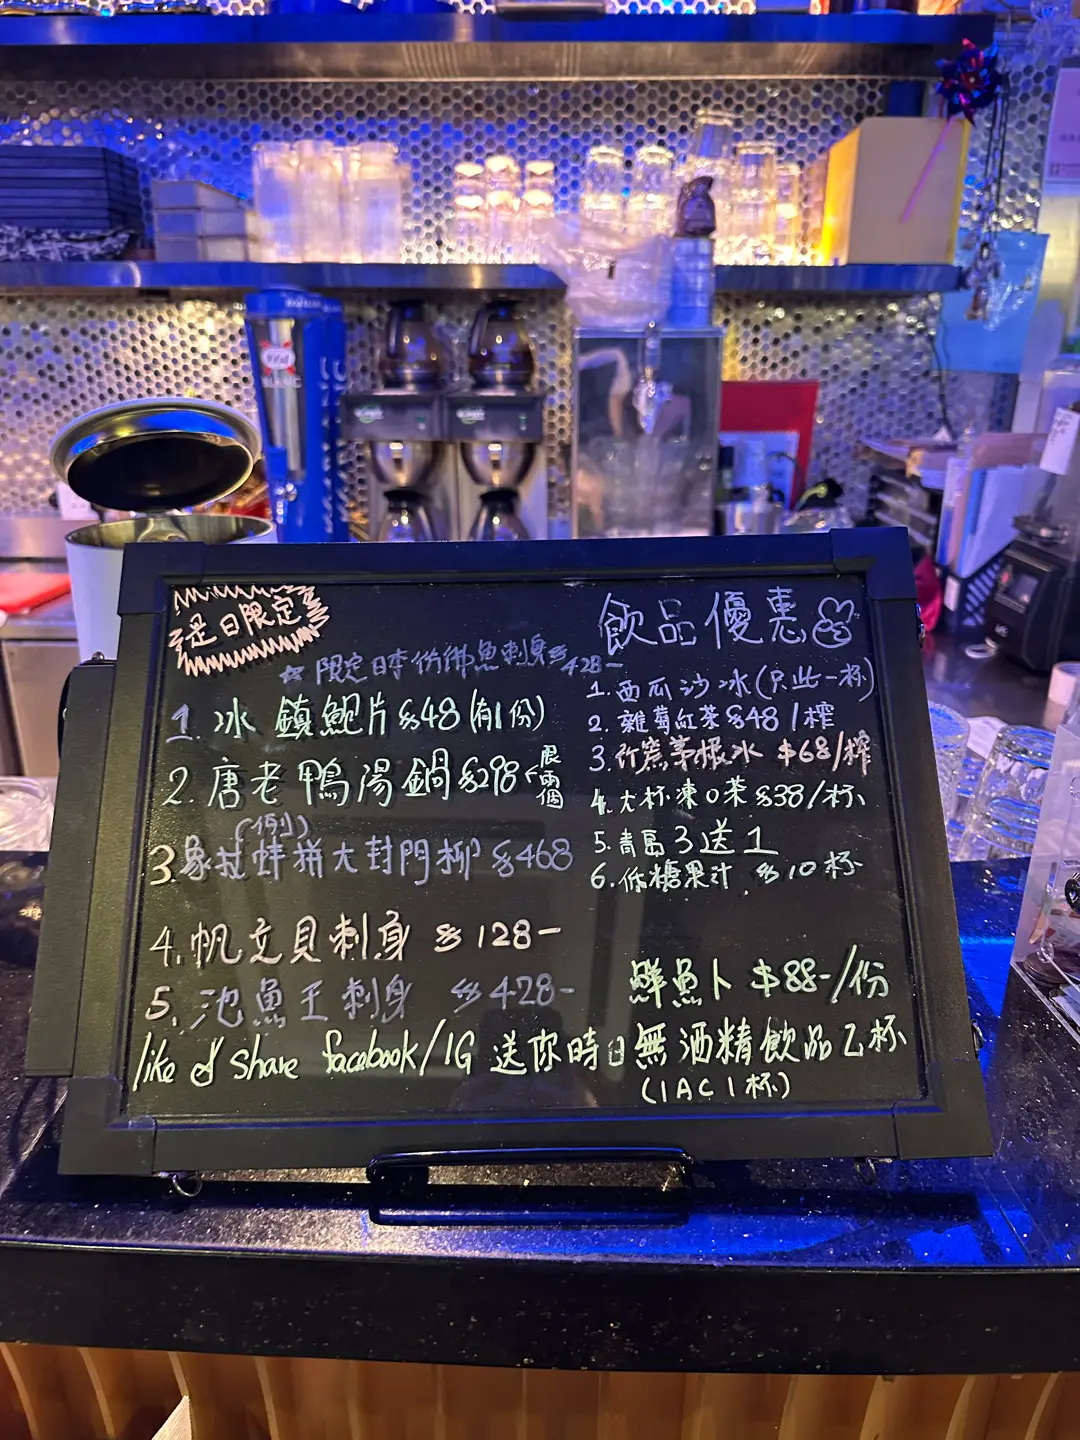 是日限定
☆ 限定日本仿佛魚刺身 $428-
1. 冰鎮鮑片 $48 (有1份)
2. 唐老鴨湯鍋 $298 限兩個
3. 象拔蚌拼大封門柳 $468
(例)
4. 帆立貝刺身 $128-
5. 池魚王刺身 $428-
飲品優惠
1. 西瓜沙冰 (只此一杯)
2. 雜莓紅茶 $48/樽
3. 竹蔗茅根水 $68/樽
4. 大杯凍0茶 $38/杯
5. 青島3送1
6. 低糖果汁 $10 杯
鮮魚卜 $88-/份
like & share facebook/IG 送你時日無酒精飲品乙杯
(1AC1杯)